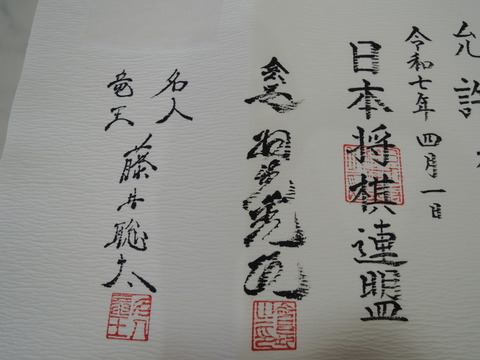 允許
令和七年四月一日
日本将棋連盟
会長 羽生善治
名人
竜王 藤井聡太